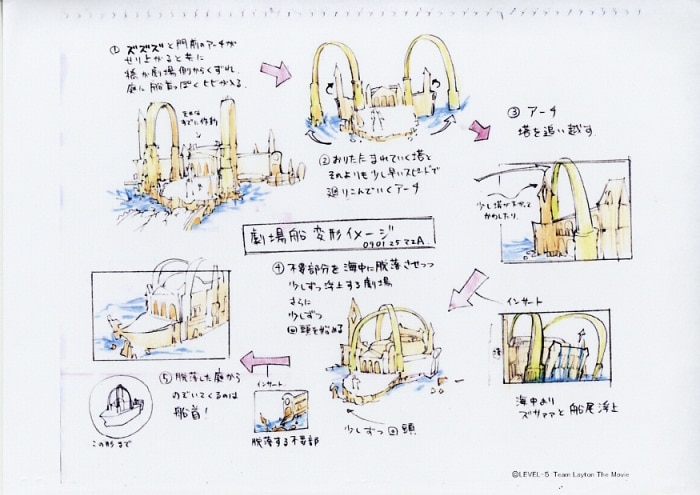 ① ズズズと門前のアーチが
せり上がると共に
橋が劇場側からくずれ、
庭に船首っぽくヒビが入る.
② おりたたまれていく塔と
それよりも少し早いスピードで
廻りこんでいくアーチ
③ アーチ
塔を追い越す
少し塔が下がって
かわしたり.
劇場船 変形イメージ
090125 22A.
インサート
海中より
ズザァァと 船尾浮上
④ 不要部分を海中に脱落させつつ
少しずつ浮上する劇場
さらに
少しずつ
回頭を始める
少しずつ 回頭
インサート
脱落する不要部
⑤ 脱落した庭から
のぞいてくるのは
船首！
この形まで
©LEVEL-5 Team Layton The Movie